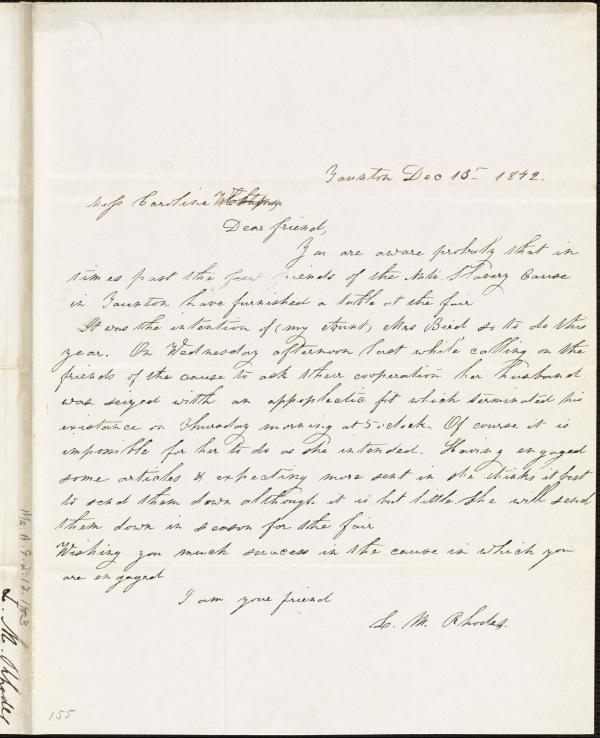 Taunton Dec 15 1842.
Miss Caroline
Dear friend,
You are aware probaly that in
times past the few friends of the Anti-Slavery Cause
in Taunton have furnished a table at the fair
It was the intention of (my Aunt, Mrs Bird so to do this
year. On Wednesday afternoon last while calling on the
friends of the cause to ask their cooperation her husband
was seized with an appoplectic fit which terminated his
existance on Thursday morning at 5 oclock. Of course it is
impossible for her to do as she intended. Having engaged
some articles & expecting more sent in she thinks it best
to send them down although it is but little. she will send
them down in season for the fair
Wishing you much success in the cause in which you
are engaged
I am your friend
L. M. Rhodes.
155
Ms. A. 9. 2. 17. 123
L. M. Rhodes